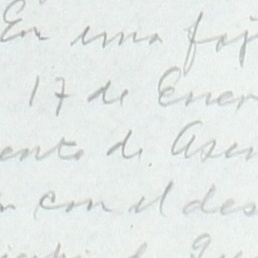 En una foj
17 de Ener
ento de Asen
n con el des